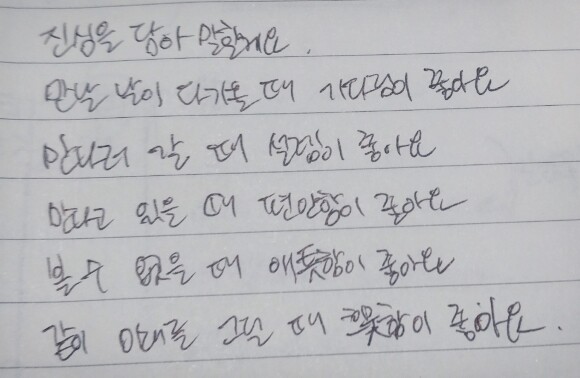 진심을 담아 말할게요.
만날 날이 다가올 때 기다림이 좋아요
만나러 갈 때 설렘이 좋아요
만나고 있을 때 편안함이 좋아요
볼 수 없을 때 애틋함이 좋아요
같이 미래를 그릴 때 흐뭇함이 좋아요.